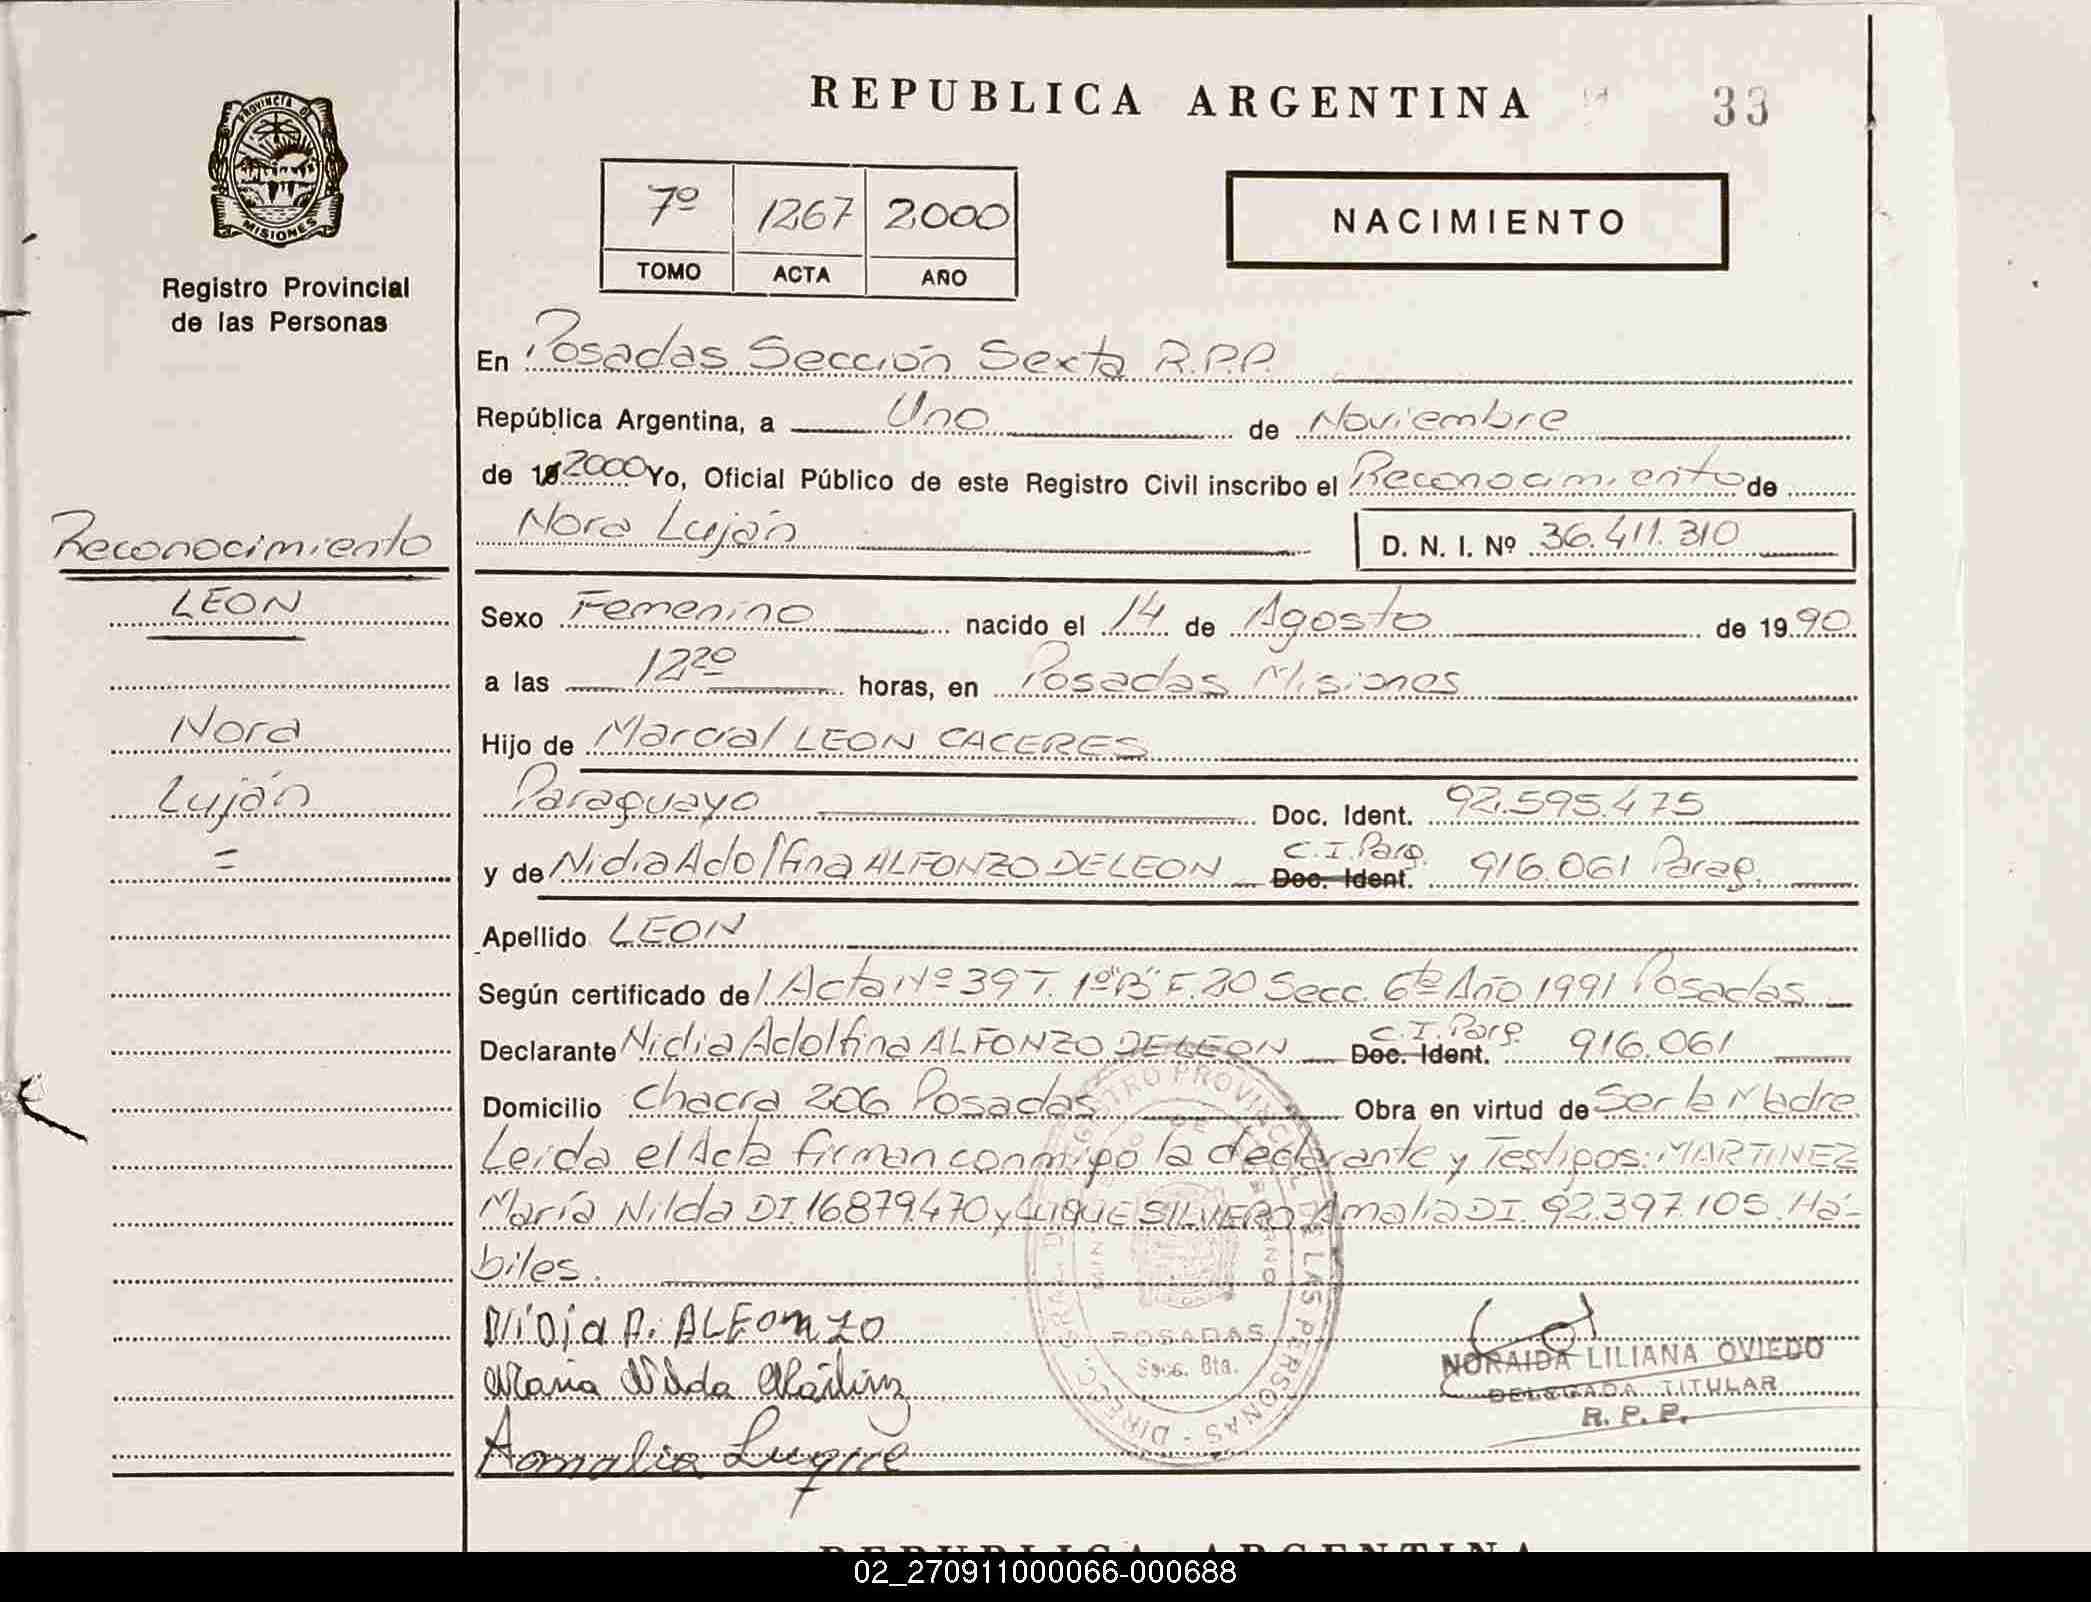 REPUBLICA ARGENTINA 33
PROVINCIA D
MISIONES
Registro Provincial
de las Personas
7º 1267 2000
TOMO ACTA AÑO
NACIMIENTO
En Posadas Sección Sexta R.P.P.
República Argentina, a Uno de Noviembre
de 2000 Yo, Oficial Público de este Registro Civil inscribo el Reconocimiento de
Nora Luján D. N. I. Nº 36.411.310
Reconocimiento
LEON
Nora
Luján
Sexo Femenino nacido el 14 de Agosto de 1990
a las 12²⁰ horas, en Posadas Misiones
Hijo de Marcial LEON CACERES
Paraguayo Doc. Ident. 92.595.475
y de Nidia Adolfina ALFONZO DE LEON C.I. Parg. Doc. Ident. 916.061 Parag.
Apellido LEON
Según certificado de Acta Nº 39 T. 1º "B" F. 20 Secc. 6ta Año 1991 Posadas
Declarante Nidia Adolfina ALFONZO DE LEON C.I. Parg. Doc. Ident. 916.061
Domicilio Chacra 206 Posadas Obra en virtud de Ser la Madre
Leida el Acta firman conmigo la declarante y Testigos: MARTINEZ
María Nilda DI. 16879.470 y LUQUE SILVERO Amalia DI. 92.397.105. Há-
biles.
Nidia A. ALFONZO
Maria Nilda Martinez
Amalia Luque
POSADAS
Secc. 6ta.
NORAIDA LILIANA OVIEDO
DELEGADA TITULAR
R. P. P.
REPUBLICA ARGENTINA
02_270911000066-000688